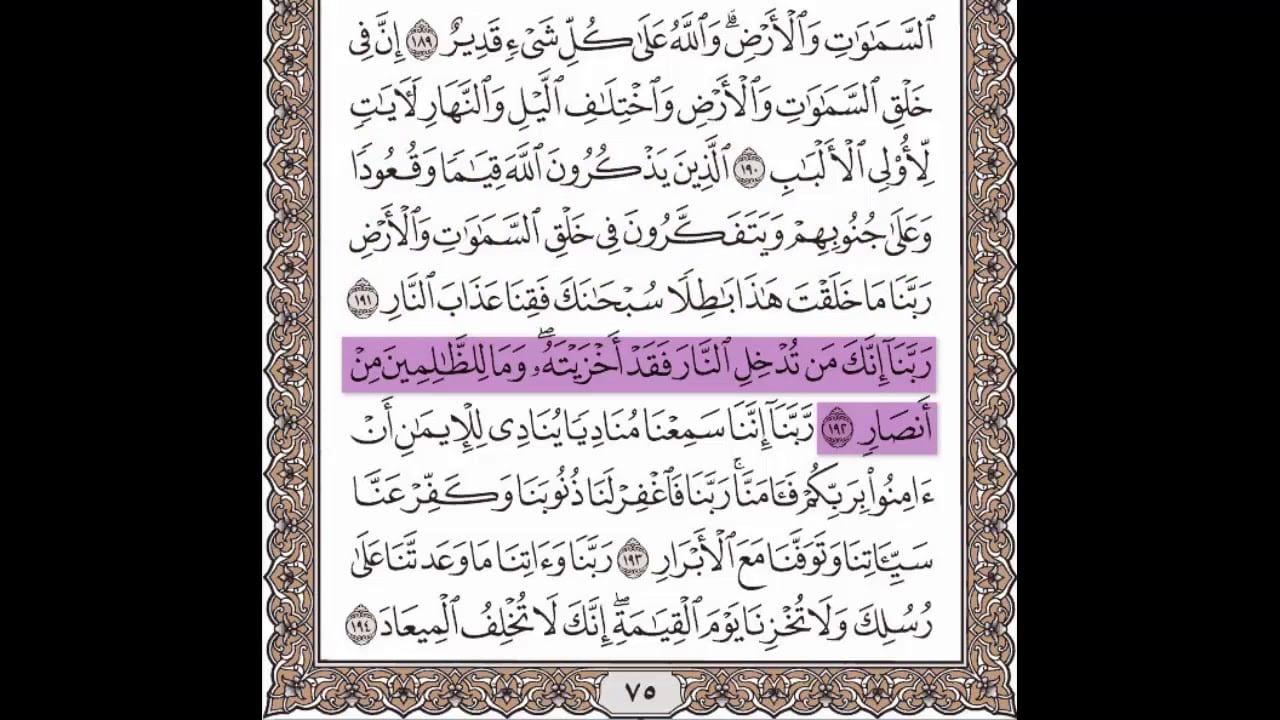 ٱلسَّمَٰوَٰتِ وَٱلْأَرْضِۗ وَٱللَّهُ عَلَىٰ كُلِّ شَىْءٍ قَدِيرٌ ١٨٩ إِنَّ فِى
خَلْقِ ٱلسَّمَٰوَٰتِ وَٱلْأَرْضِ وَٱخْتِلَٰفِ ٱلَّيْلِ وَٱلنَّهَارِ لَءَايَٰتٍ
لِّأُو۟لِى ٱلْأَلْبَٰبِ ١٩٠ ٱلَّذِينَ يَذْكُرُونَ ٱللَّهَ قِيَٰمًا وَقُعُودًا
وَعَلَىٰ جُنُوبِهِمْ وَيَتَفَكَّرُونَ فِى خَلْقِ ٱلسَّمَٰوَٰتِ وَٱلْأَرْضِ
رَبَّنَا مَا خَلَقْتَ هَٰذَا بَٰطِلًا سُبْحَٰنَكَ فَقِنَا عَذَابَ ٱلنَّارِ ١٩١
رَبَّنَآ إِنَّكَ مَن تُدْخِلِ ٱلنَّارَ فَقَدْ أَخْزَيْتَهُۥۖ وَمَا لِلظَّٰلِمِينَ مِنْ
أَنصَارٍ ١٩٢ رَّبَّنَآ إِنَّنَا سَمِعْنَا مُنَادِيًا يُنَادِى لِلْإِيمَٰنِ أَنْ
ءَامِنُوا۟ بِرَبِّكُمْ فَـَٔامَنَّاۚ رَبَّنَا فَٱغْفِرْ لَنَا ذُنُوبَنَا وَكَفِّرْ عَنَّا
سَيِّـَٔاتِنَا وَتَوَفَّنَا مَعَ ٱلْأَبْرَارِ ١٩٣ رَبَّنَا وَءَاتِنَا مَا وَعَدتَّنَا عَلَىٰ
رُسُلِكَ وَلَا تُخْزِنَا يَوْمَ ٱلْقِيَٰمَةِۖ إِنَّكَ لَا تُخْلِفُ ٱلْمِيعَادَ ١٩٤
٧٥